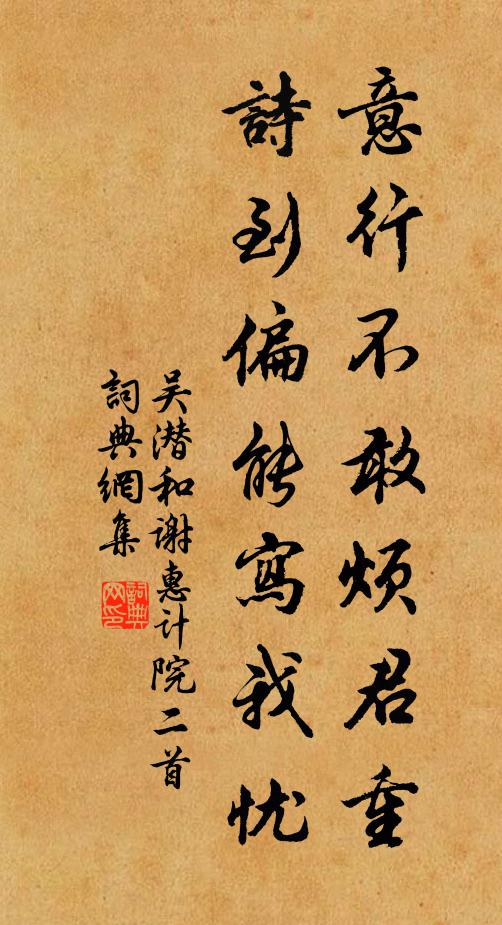 意行不敢煩君重
詩到偏能寫我忧
吴潜和谢惠计院二首
詞典網集
詞典網印